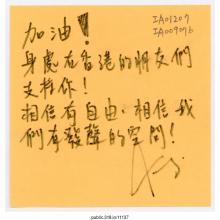 加油!
IA01207
IA009076
身處在香港的朋友們
支持你!
相信有自由,相信我
們有發聲的空間!
public.318.io/11137